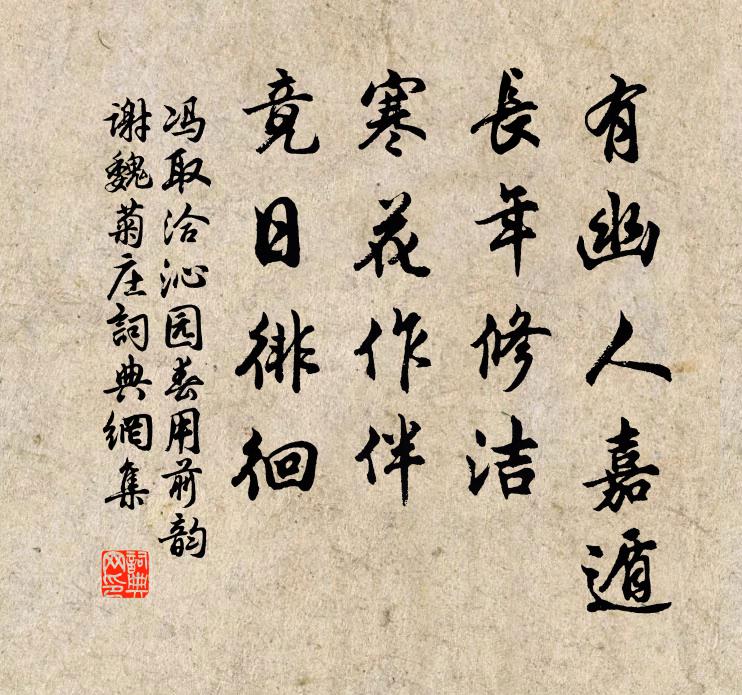 有幽人嘉遁
長年修洁
寒花作伴
竟日徘徊
冯取洽沁园春用前韵
谢魏菊庄詞典網集
詞典
网印